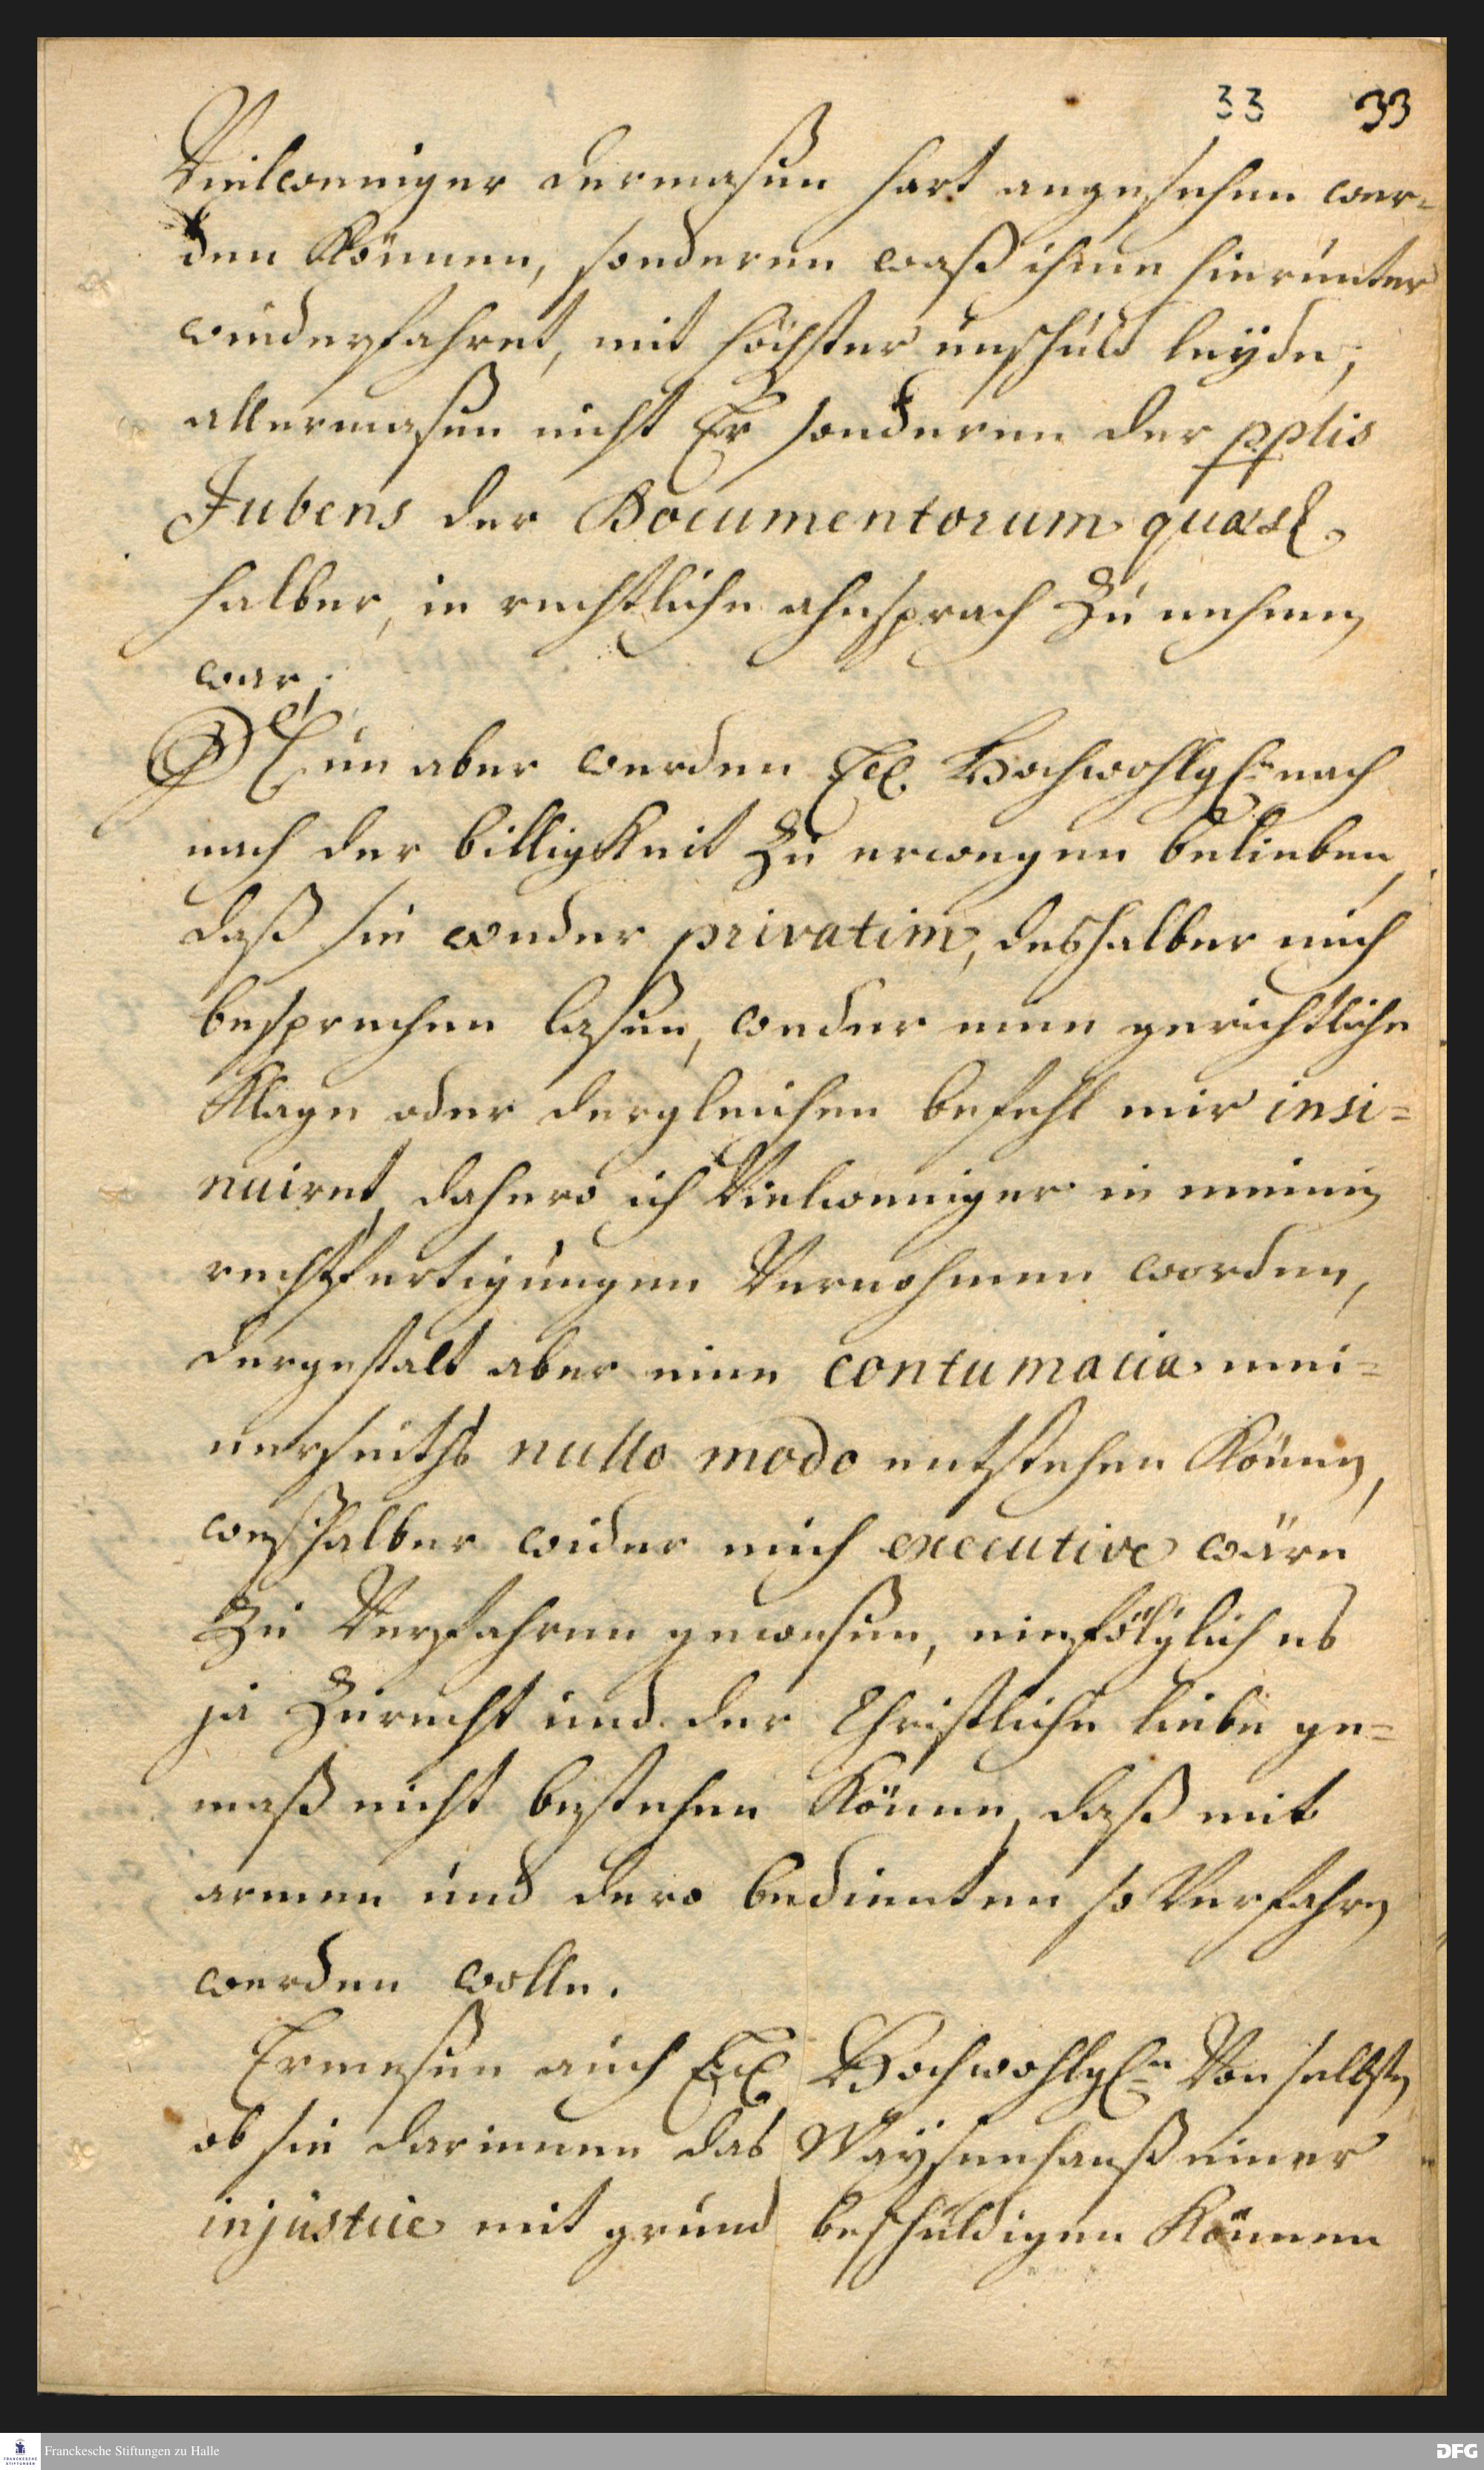 33 33
Vielweniger dermasen hart angesehen wer-
den Können, sonderen waß ihme hierunter
wiederfahret, mit höchster unschuld leyde,
allermasen nicht Er sonderen der pplis
Jubens der Documentorum quæst.
halber, in rechtliche ahnsprach Zu nehmen
war,
Nun aber werden Ew. Hochwohlgb. nach
nach der billigkeit Zu erwegen belieben,
daß sie weder privatim, deshalber mich
besprechen lasen, weder eine gerichtliche
Klage oder dergleichen befehl mir insi=
nuiret, dahero ich Vielweniger in meinen
rechtfertigungen Vernohmen worden,
dergestalt aber eine contumacia mei=
nerseiths nullo modo entstehen Können,
weshalber wider mich executive wäre
Zu Verfahren gewesen, einfölglich es
ja Zurecht und der Christliche liebe ge=
maß nicht bestehen Könne, daß mit
armen und dero bedienten so Verfahren
werden wolle.
Ermesen auch Ew. Hochwohlgb. Von selbsten
ob sie darinnen das Waysenhauß einer
injustice mit grund beschuldigen Können
Franckesche Stiftungen zu Halle
DFG